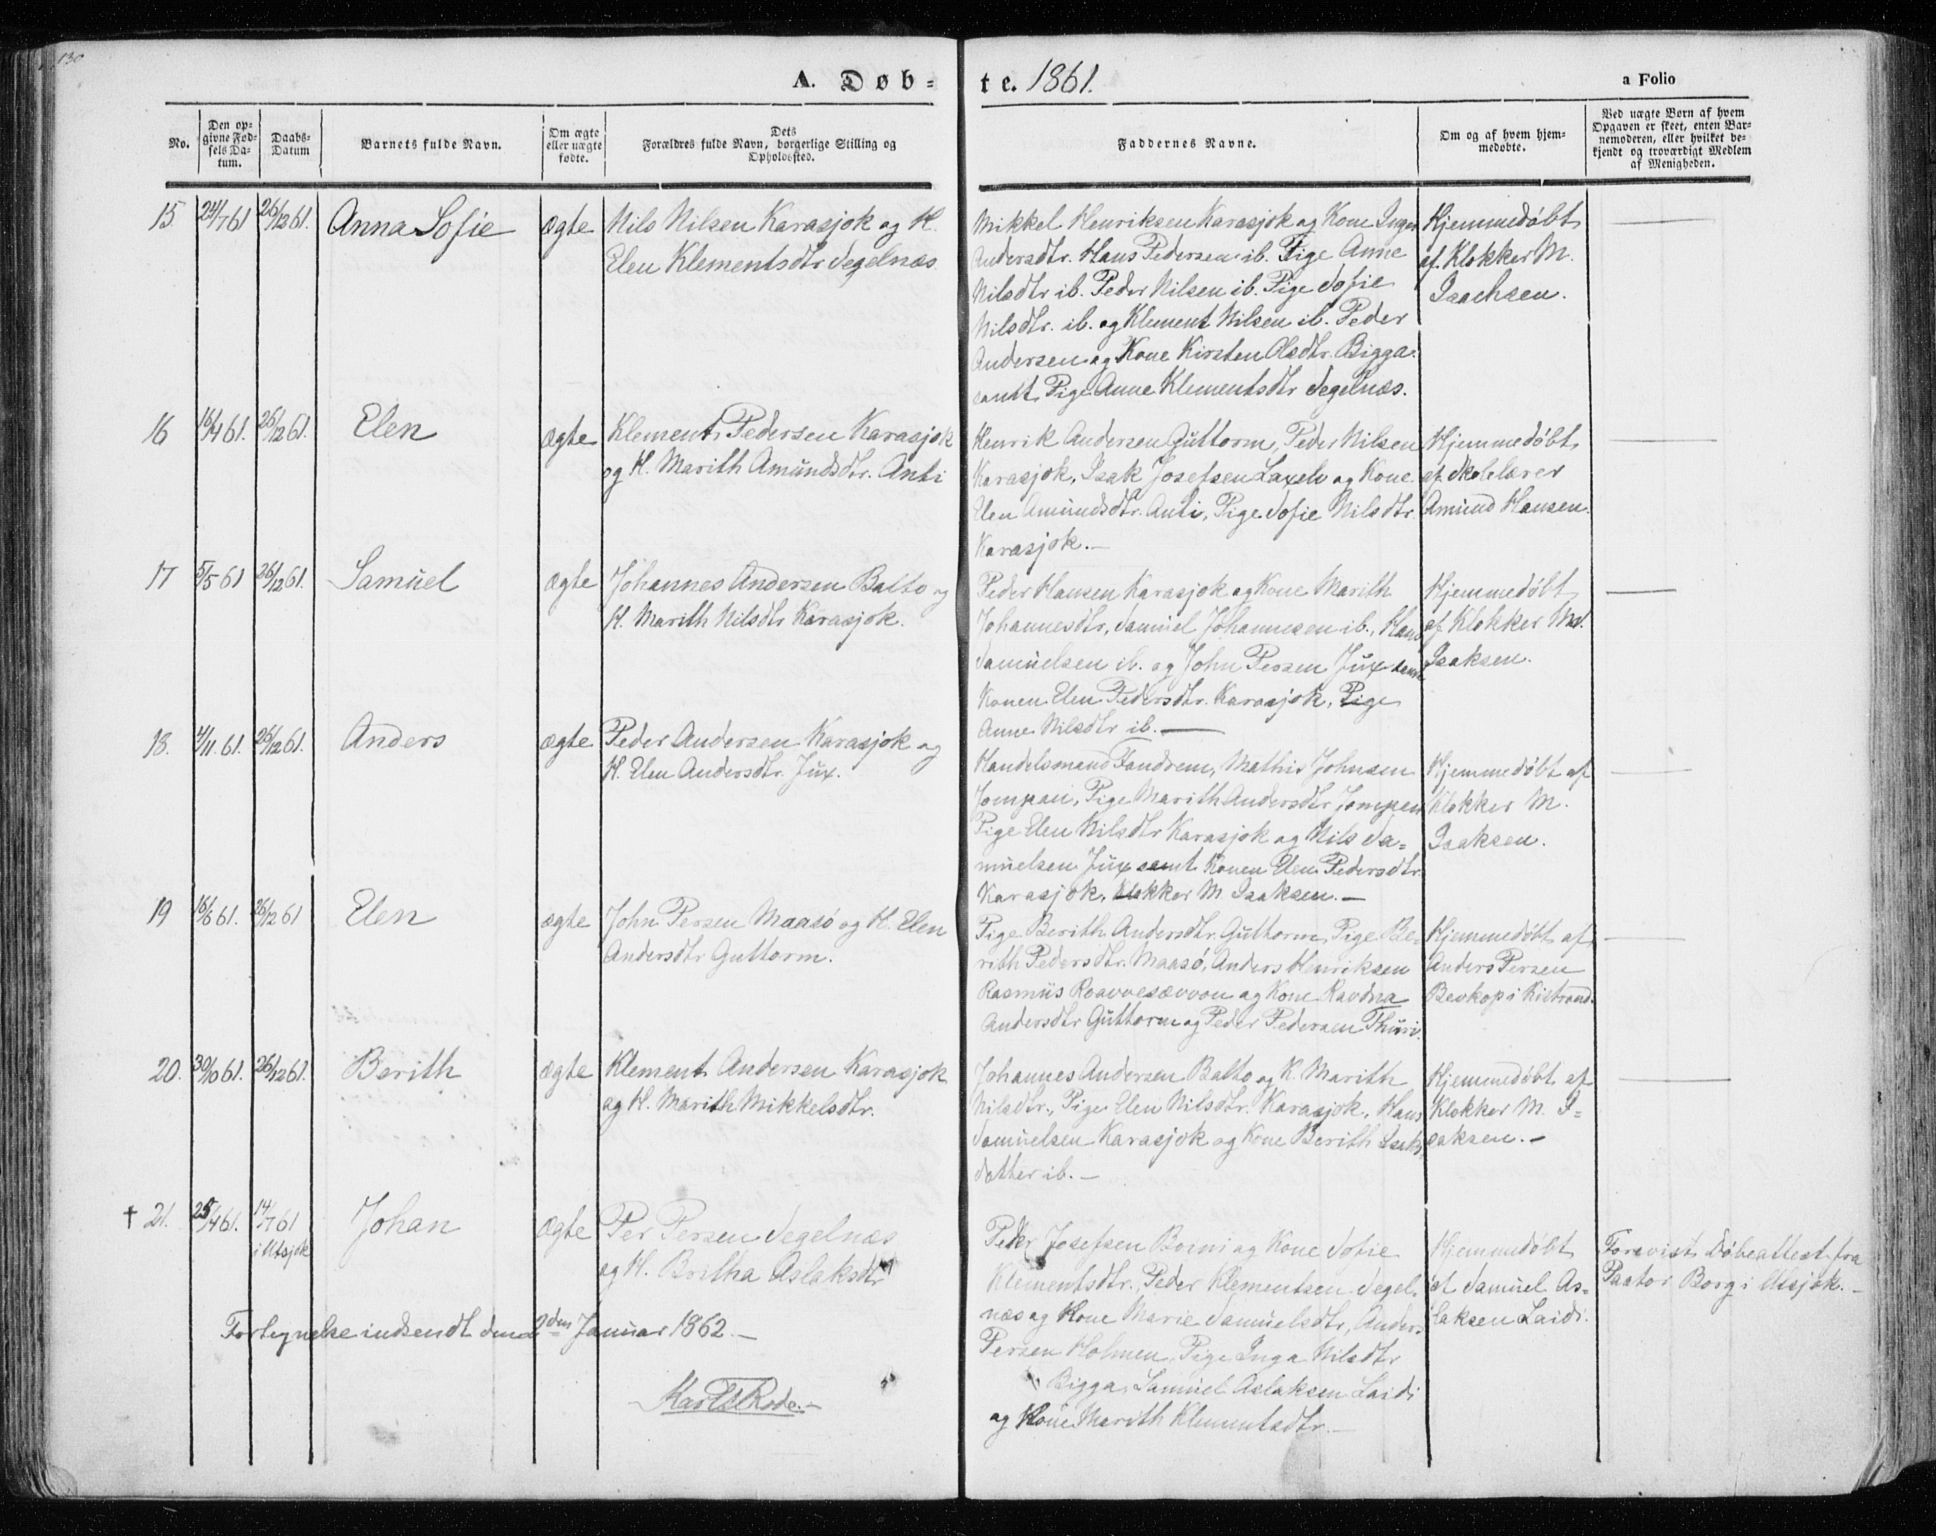 130
A. Døb-
te. 1861.
a Folio
No.
Den op-
givne Fød-
sels Da-
tum.
Daabs-
Datum
Barnets fulde Navn.
Om ægte
eller uægte
fødte.
Dets
Forældres fulde Navn, borgerlige Stilling og
Opholdssted.
Faddernes Navne.
Om og af hvem hjem-
medøbte.
Ved uægte Børn af hvem
Opgaven er skeet, enten Bar-
nemoderen, eller hvilket be-
kjendt og troværdigt Medlem
af Menigheden.
15 24/7 61 26/12 61. Anna Sofie ægte
Nils Nilsen Karasjok og H.
Elen Klementsdtr Segelnæs
Mikkel Henriksen Karasjok og Kone Inger
Andersdtr. Hans Pedersen ib. Pige Anne
Nilsdtr ib. Peder Nilsen ib. Pige Sofie
Nilsdtr. ib. og Klement Nilsen ib. Peder
Andersen og Kone Kirsten Olsdtr. Bigga
samt Pige Anne Klementsdtr Segelnæs.
Hjemmedøbt
af Klokker M.
Isachsen.
16 16/4 61. 26/12 61. Elen ægte
Klement Pedersen Karasjok
og H. Marith Amundsdtr. Anti
Henrik Andersen Guttorm, Peder Nilsen
Karasjok, Isak Josefsen Laxelv og Kone
Elen Amundsdtr. Anti, Pige Sofie Nilsdtr.
Karasjok.—
Hjemmedøbt
af Skolelærer
Amund Hansen.
17 5/5 61 26/12 61. Samuel ægte
Johannes Andersen Balto og
H. Marith Nilsdtr Karasjok.
Peder Hansen Karasjok og Kone Marith
Johannesdtr, Samuel Johannesen ib., Hans
Samuelsen ib. og John Persen Jux samt
Konen Elen Pedersdtr. Karasjok, Pige
Anne Nilsdtr ib.—
Hjemmedøbt
af Klokker M.
Isaksen.
18. 4/11. 61. 26/12 61. Anders ægte
Peder Andersen Karasjok og
H. Elen Andersdtr. Jux.
Handelsmand Fandrem, Mathis Johnsen
Jompan, Pige Marith Andersdtr Jompan
Pige Elen Nilsdtr Karasjok og Nils Sa-
muelsen Jux samt Konen Elen Pedersdtr.
Karasjok, Klokker M. Isaksen.—
Hjemmedøbt af
Klokker M.
Isaksen.
19 16/6 61. 26/12 61 Elen ægte
John Persen Maasø og H. Elen
Andersdtr Guttorm.
Pige Berith Andersdtr. Guttorm, Pige Be-
rith Pedersdtr. Maasø, Anders Henriksen
Rasmus Roavvesævvon og Kone Ravdna
Andersdtr Guttorm og Peder Pedersen Thuri.
Hjemmedøbt af
Anders Persen
Bevkop i Ristrand.
20. 30/10 61. 26/12 61. Berith ægte
Klement Andersen Karasjok
og H. Marith Mikkelsdtr.
Johannes Andersen Balto og K. Marith
Nilsdtr., Pige Elen Nilsdtr. Karasjok, Hans
Samuelsen Karasjok og Kone Berith Isaks
datter ib.—
Hjemmedøbt af
Klokker M. I-
saksen.—
† 21. 25/4 61. 14/7 61 i Utsjok Johan ægte
Per Persen Segelnæs
og H. Britha Aslaksdtr
Peder Josefsen Borni og Kone Sofie
Klementsdtr., Peder Klementsen Segel-
næs og Kone Marie Samuelsdtr, Anders
Persen Holmen, Pige Inga Nilsdtr
Bigga, Samuel Aslaksen Laidi
og Kone Marith Klementsdtr.—
Hjemmedøbt
af Samuel As-
laksen Laidi.
Forevist Døbeattest fra
Pastor Borg i Utsjok.—
Fortegnelse indsendt den 2den Januar 1862.—
Karl Rode.—